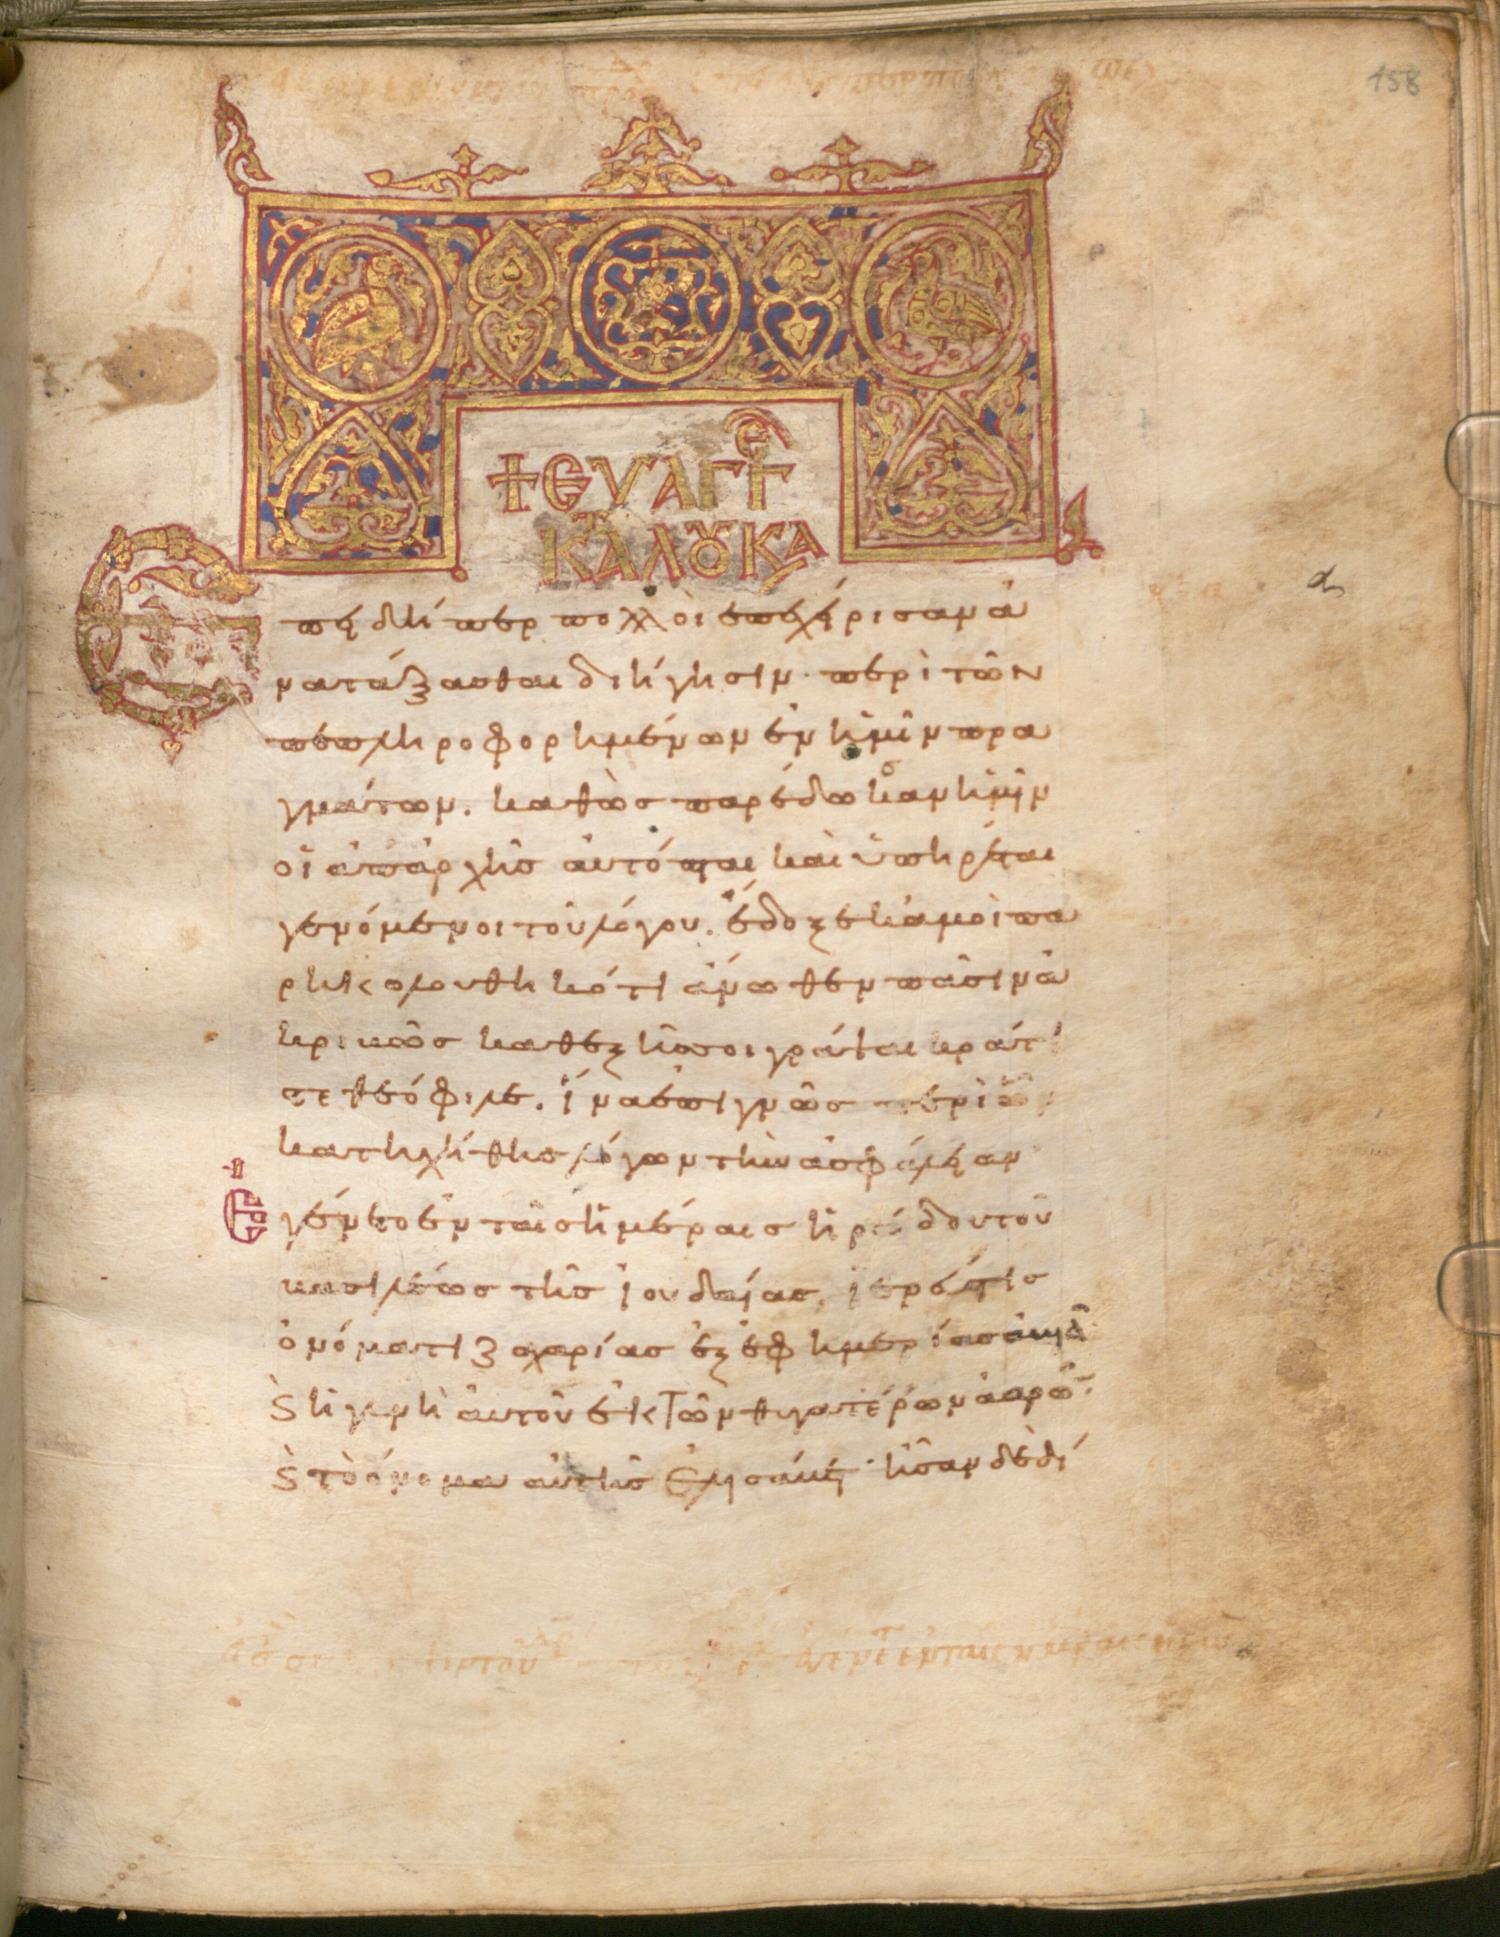 158
+ ΕΥΑΓΓΕ
ΚΑΤΑ ΛΟΥΚΑ
Ἐπειδήπερ πολλοὶ ἐπεχείρησαν ἀ
νατάξασθαι διήγησιν· περὶ τῶν
πεπληροφορημένων ἐν ἡμῖν πρα
γμάτων. καθὼς παρέδωκαν ἡμῖν
οἱ ἀπαρχῆς αὐτόπται καὶ ὑπηρέται
γενόμενοι τοῦ λόγου. ἔδοξε κἀμοὶ πα
ρηκολουθηκότι ἄνωθεν πᾶσιν ἀ
κριβῶς καθεξῆς σοι γράψαι κράτι
τε θεόφιλε. ἵνα ἐπιγνῶς περὶ ὧν
κατηχήθης λόγων τὴν ἀσφάλειαν
Ἐγένετο ἐν ταῖς ἡμέραις ἡρώδου τοῦ
βασιλέως τῆς ἰουδαίας, ἱερεύς τις
ὀνόματι ζαχαρίας ἐξ ἐφημερίας ἀβιά
ϗ ἡ γυνὴ αὐτοῦ ἐκ τῶν θυγατέρων ἀαρών
ϗ τὸ ὄνομα αὐτῆς ἐλισάβετ· ἦσαν δὲ δί